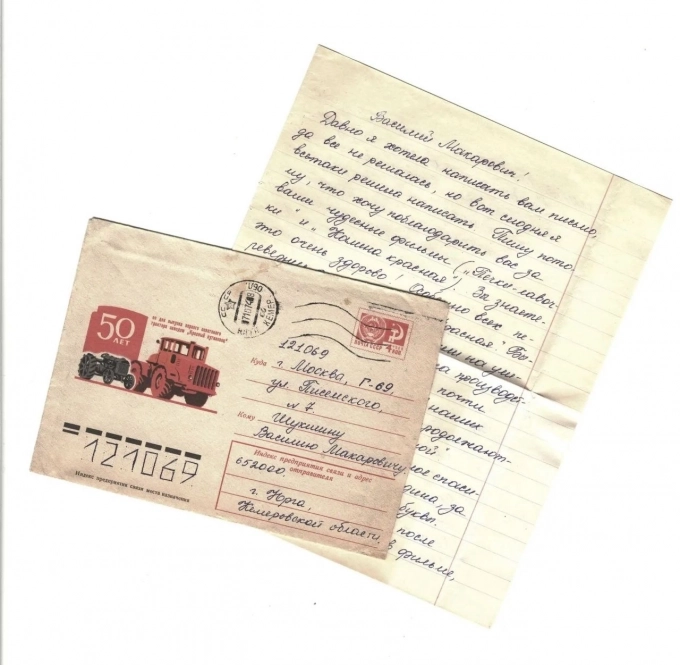 Василий Макарович!
Давно я хотела написать вам письмо,
да все не решалась, но вот сегодня я
всетаки решила написать. Пишу пото
му, что хочу поблагодарить вас за
ваши чудесные фильмы ("Печки-лавоч-
ки" и "Калина красная"). Вы знаете
это очень здорово!
всех
красная.
на производ
почти
наших
продолжают-
спаси-
за
букв.
после
в фильме,
50
ЛЕТ
со дня выпуска первого советского
трактора заводом „Красный путиловец"
СССР
ПОЧТА СССР
4
КОП
121069
Куда г. Москва, Г-69
ул. Писемского,
№ 7
Кому Шукшину
Василию Макаровичу
Индекс предприятия связи и адрес
отправителя
652000.
г. Юрга,
Кемеровской области.
121069
Индекс предприятия связи места назначения